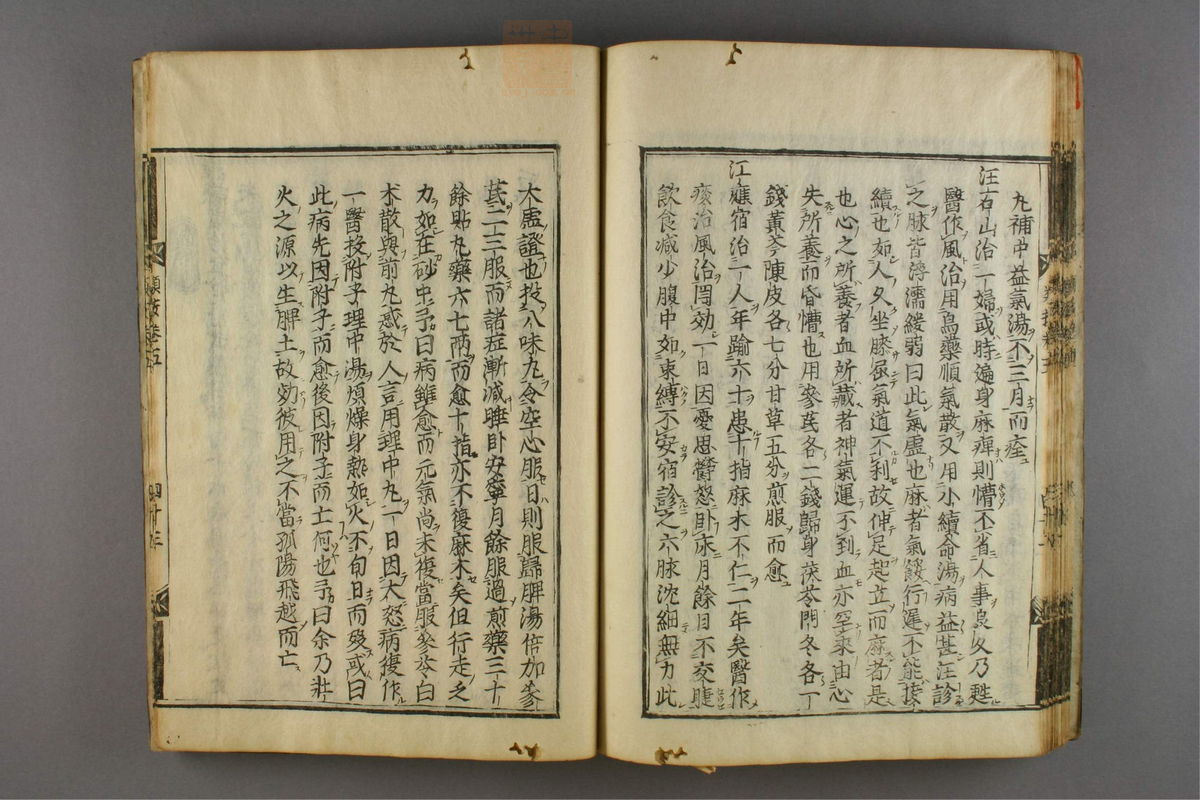 丸補中益氣湯不三月而痊
汪石山治一婦或時遍身麻痺則懵不省人事良久乃甦
醫作風治用烏藥順氣散又用小續命湯病益甚汪診
之脉皆浮濡緩弱曰此氣虛也麻者氣餒行遲不能接
續也如人久坐膝屈氣道不利故伸足起立而麻者是
也心之所養者血所藏者神氣運不到血亦罕來由心
失所養而昏懵也用參芪各二錢歸身茯苓門冬各一
錢黃芩陳皮各七分甘草五分煎服而愈
江應宿治一人年踰六十患十指麻木不仁二年矣醫作
痰治風治罔効一日因憂思鬱怒卧床月餘目不交睫
飲食减少腹中如束縛不安宿診之六脉沈細無力此
大虛證也投八味丸令空心服日則服歸脾湯倍加參
芪二三服而諸症漸减睡卧安寧月餘服過煎藥三十
餘貼丸藥六七兩而愈十指亦不復麻木矣但行走之
力如在砂中予曰病雖愈而元氣尚未復當服參苓白
术散與前丸惑於人言用理中丸一日因大怒病復作
一醫投附子理中湯煩燥身熱如火不旬日而歿或曰
此病先因附子而愈後因附子而亡何也予曰余乃壯
火之源以生脾土故効彼用之不當孤陽飛越而亡